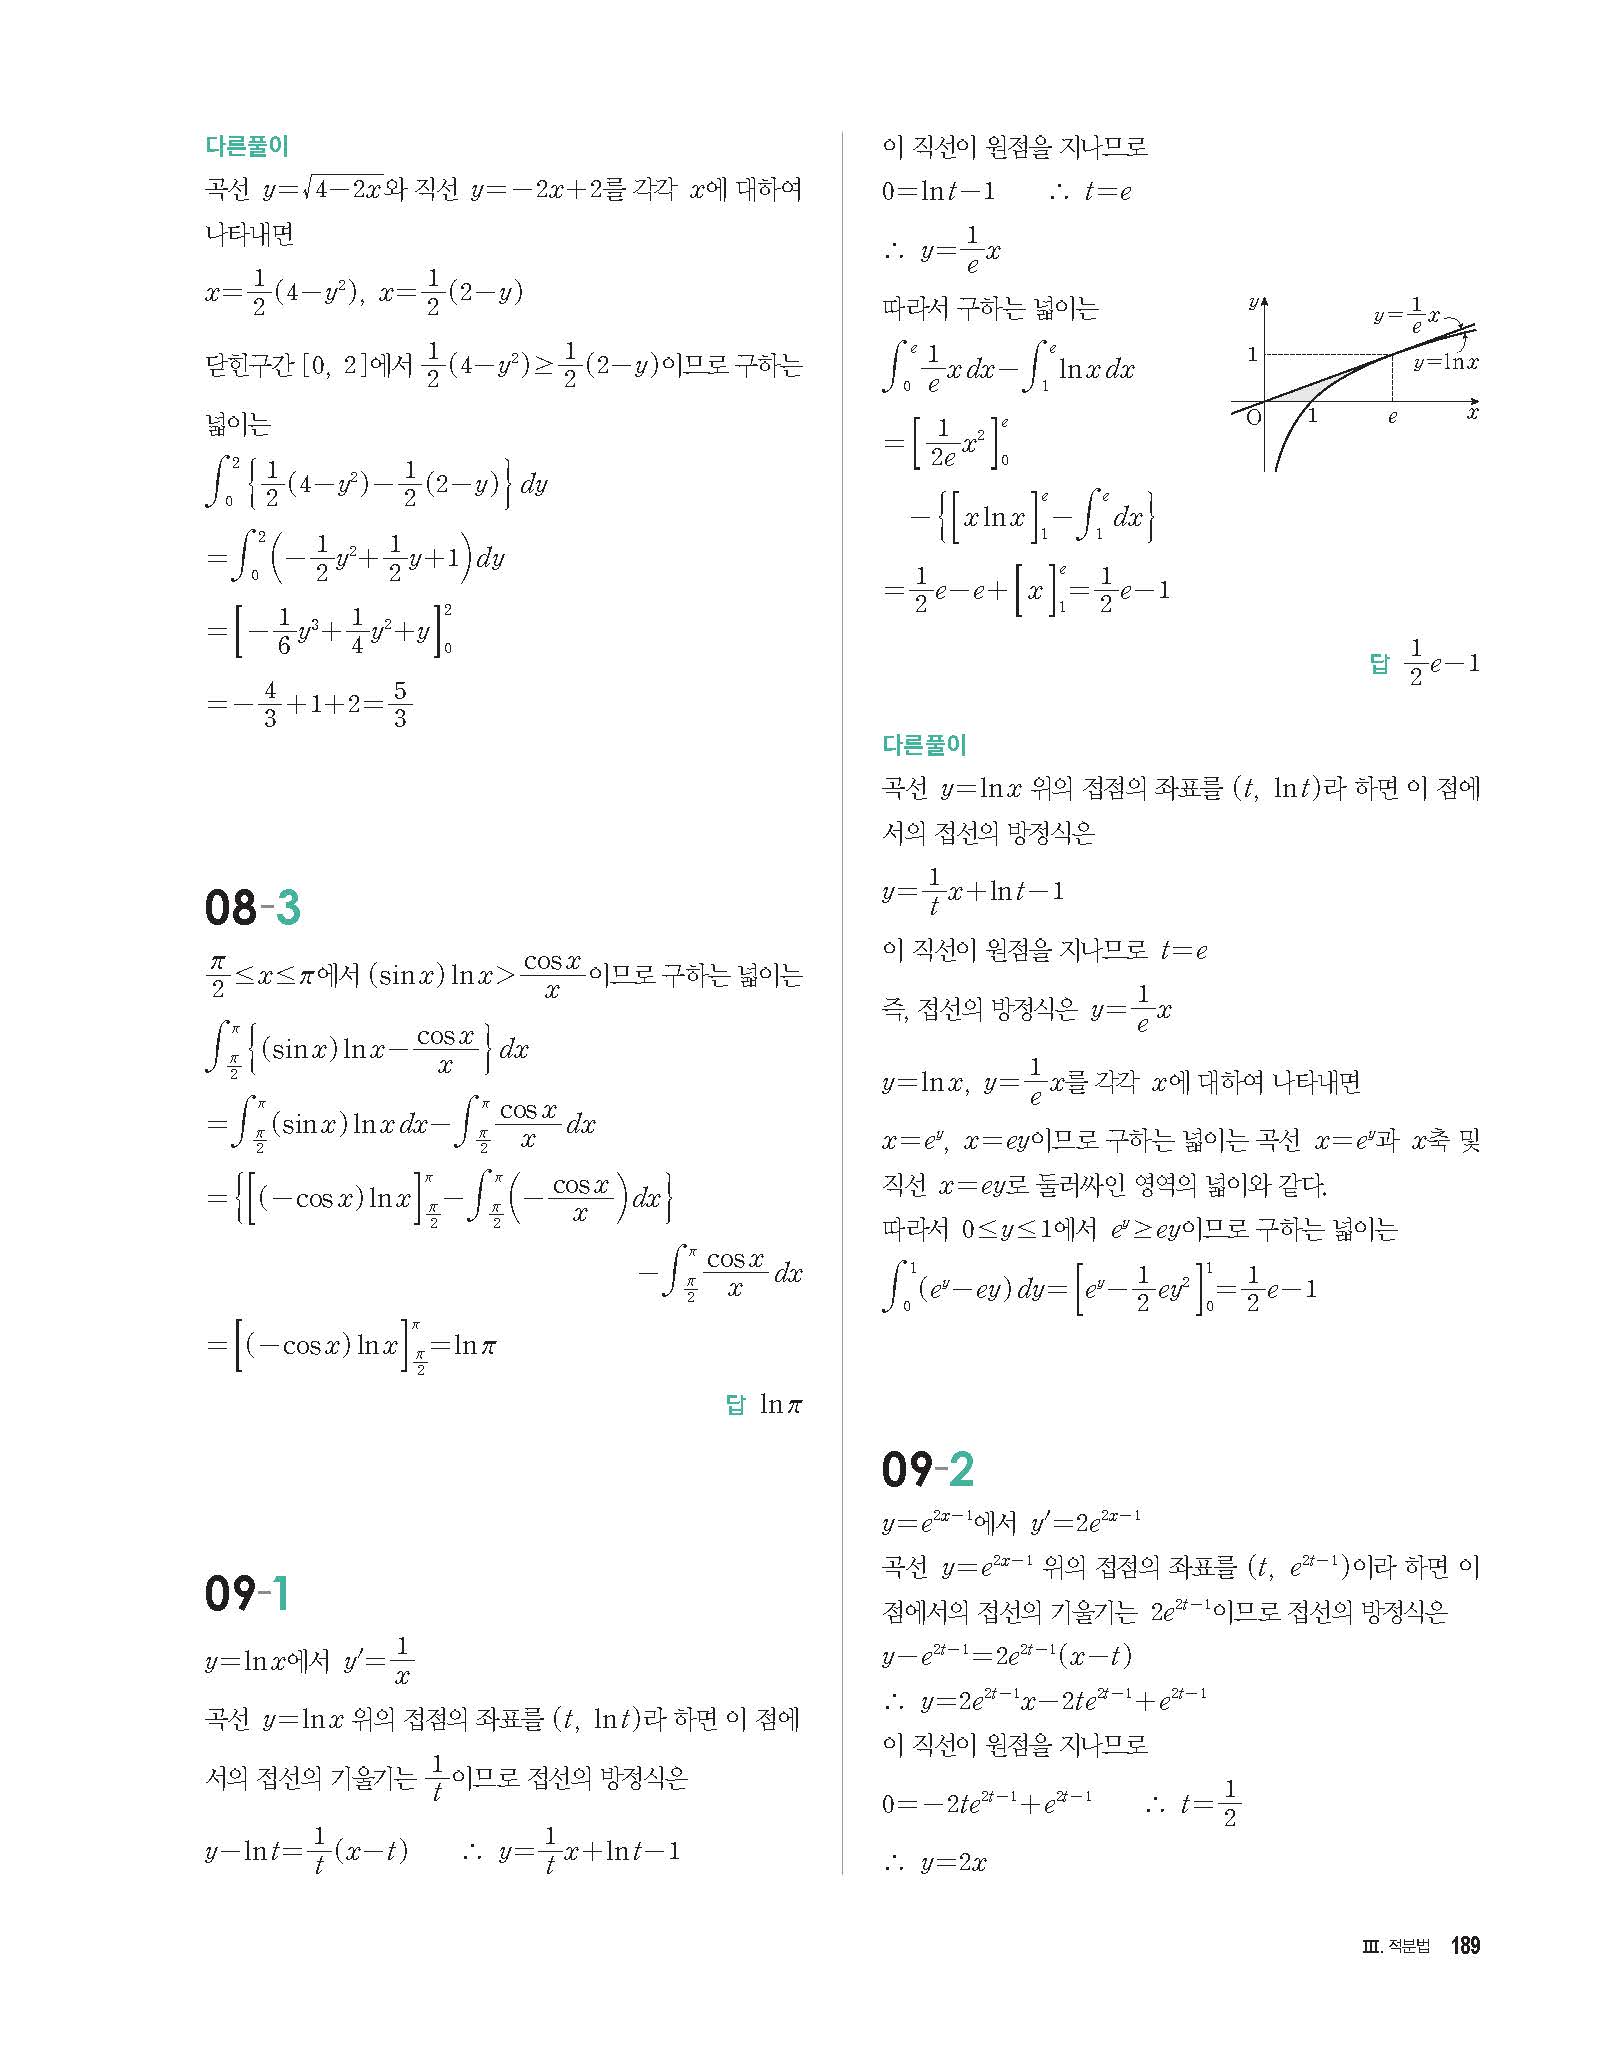 다른풀이
곡선 y=√4-2x와 직선 y=-2x+2를 각각 x에 대하여
나타내면
x=1/2(4-y²), x=1/2(2-y)
닫힌구간 [0, 2]에서 1/2(4-y²)≥1/2(2-y)이므로 구하는
넓이는
∫₀²{1/2(4-y²)-1/2(2-y)}dy
=∫₀²(-1/2y²+1/2y+1)dy
=[-1/6y³+1/4y²+y]₀²
=-4/3+1+2=5/3
08-3
π/2≤x≤π에서 (sin x) ln x>cos x/x이므로 구하는 넓이는
∫_{π/2}^{π}{(sin x) ln x-cos x/x}dx
=∫_{π/2}^{π}(sin x) ln x dx-∫_{π/2}^{π}cos x/x dx
={[(-cos x) ln x]_{π/2}^{π}-∫_{π/2}^{π}(-cos x/x)dx}
-∫_{π/2}^{π}cos x/x dx
=[(-cos x) ln x]_{π/2}^{π}=ln π
답 ln π
09-1
y=ln x에서 y′=1/x
곡선 y=ln x 위의 접점의 좌표를 (t, ln t)라 하면 이 점에
서의 접선의 기울기는 1/t이므로 접선의 방정식은
y-ln t=1/t(x-t) ∴ y=1/t x+ln t-1
이 직선이 원점을 지나므로
0=ln t-1 ∴ t=e
∴ y=1/e x
따라서 구하는 넓이는
∫₀^e 1/e x dx-∫₁^e ln x dx
=[1/2e x²]₀^e
-{[x ln x]₁^e-∫₁^e dx}
=1/2e-e+[x]₁^e=1/2e-1
y
y=1/e x
1
y=ln x
O
1
e
x
답 1/2e-1
다른풀이
곡선 y=ln x 위의 접점의 좌표를 (t, ln t)라 하면 이 점에
서의 접선의 방정식은
y=1/t x+ln t-1
이 직선이 원점을 지나므로 t=e
즉, 접선의 방정식은 y=1/e x
y=ln x, y=1/e x를 각각 x에 대하여 나타내면
x=e^y, x=ey이므로 구하는 넓이는 곡선 x=e^y과 x축 및
직선 x=ey로 둘러싸인 영역의 넓이와 같다.
따라서 0≤y≤1에서 e^y≥ey이므로 구하는 넓이는
∫₀¹(e^y-ey)dy=[e^y-1/2ey²]₀¹=1/2e-1
09-2
y=e^{2x-1}에서 y′=2e^{2x-1}
곡선 y=e^{2x-1} 위의 접점의 좌표를 (t, e^{2t-1})이라 하면 이
점에서의 접선의 기울기는 2e^{2t-1}이므로 접선의 방정식은
y-e^{2t-1}=2e^{2t-1}(x-t)
∴ y=2e^{2t-1}x-2te^{2t-1}+e^{2t-1}
이 직선이 원점을 지나므로
0=-2te^{2t-1}+e^{2t-1} ∴ t=1/2
∴ y=2x
Ⅲ. 적분법 189